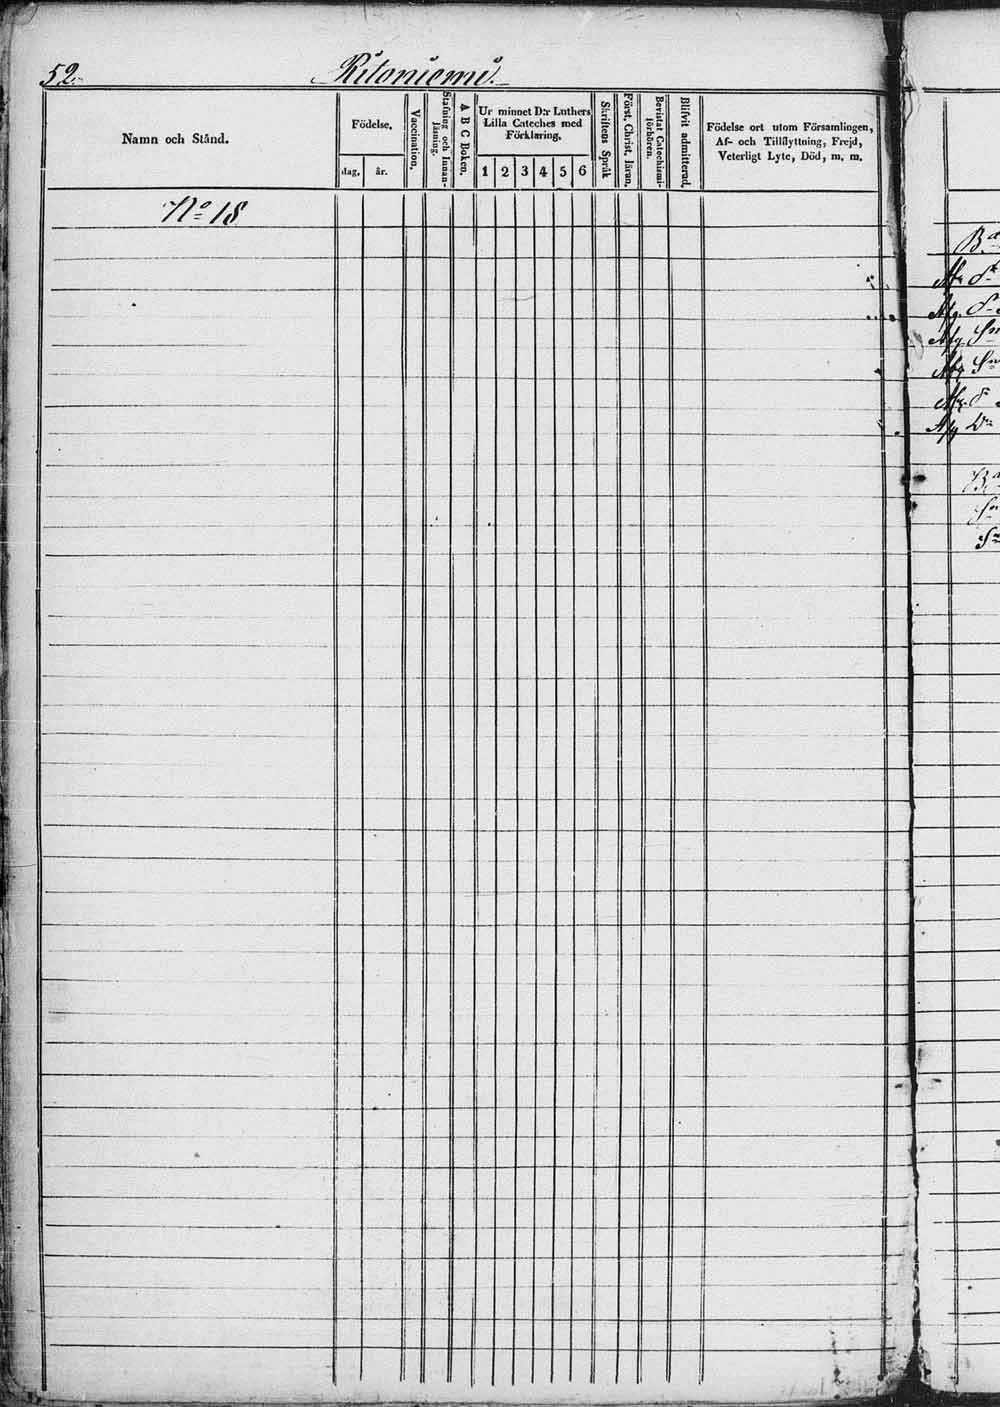 52. Ritoniemi.
Namn och Stånd.
Födelse.
dag. år.
Vaccination.
Stafning och Innan-
läsning.
A B C Boken.
Ur minnet D:r Luthers
Lilla Cateches med
Förklaring.
1 2 3 4 5 6
Skriftens Språk
Först. Christ. läran.
Bevistat Catechismi-
förhören.
Blifvit admitterad.
Födelse ort utom Församlingen,
Af- och Tillflyttning, Frejd,
Veterligt Lyte, Död, m. m.
No 18